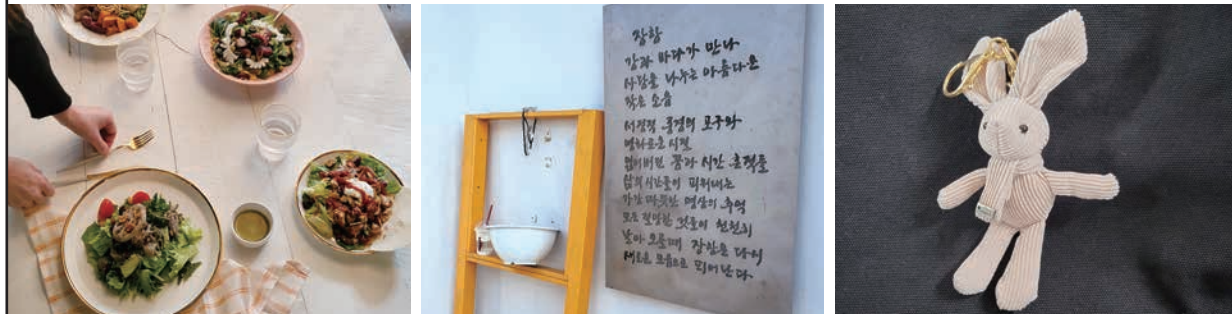 장항
강과 바다가 만나
사랑을 나누는 아름다운
작은 소읍
서정적 풍경의 포구와
명화로운 시절
잃어버린 꿈과 시간 흔적들
삶의 시간들이 피워내는
가장 따뜻한 명상의 추억
모든 절망한 것들이 천천히
날아 오를때 장항은 다시
새로운 모습으로 피어난다